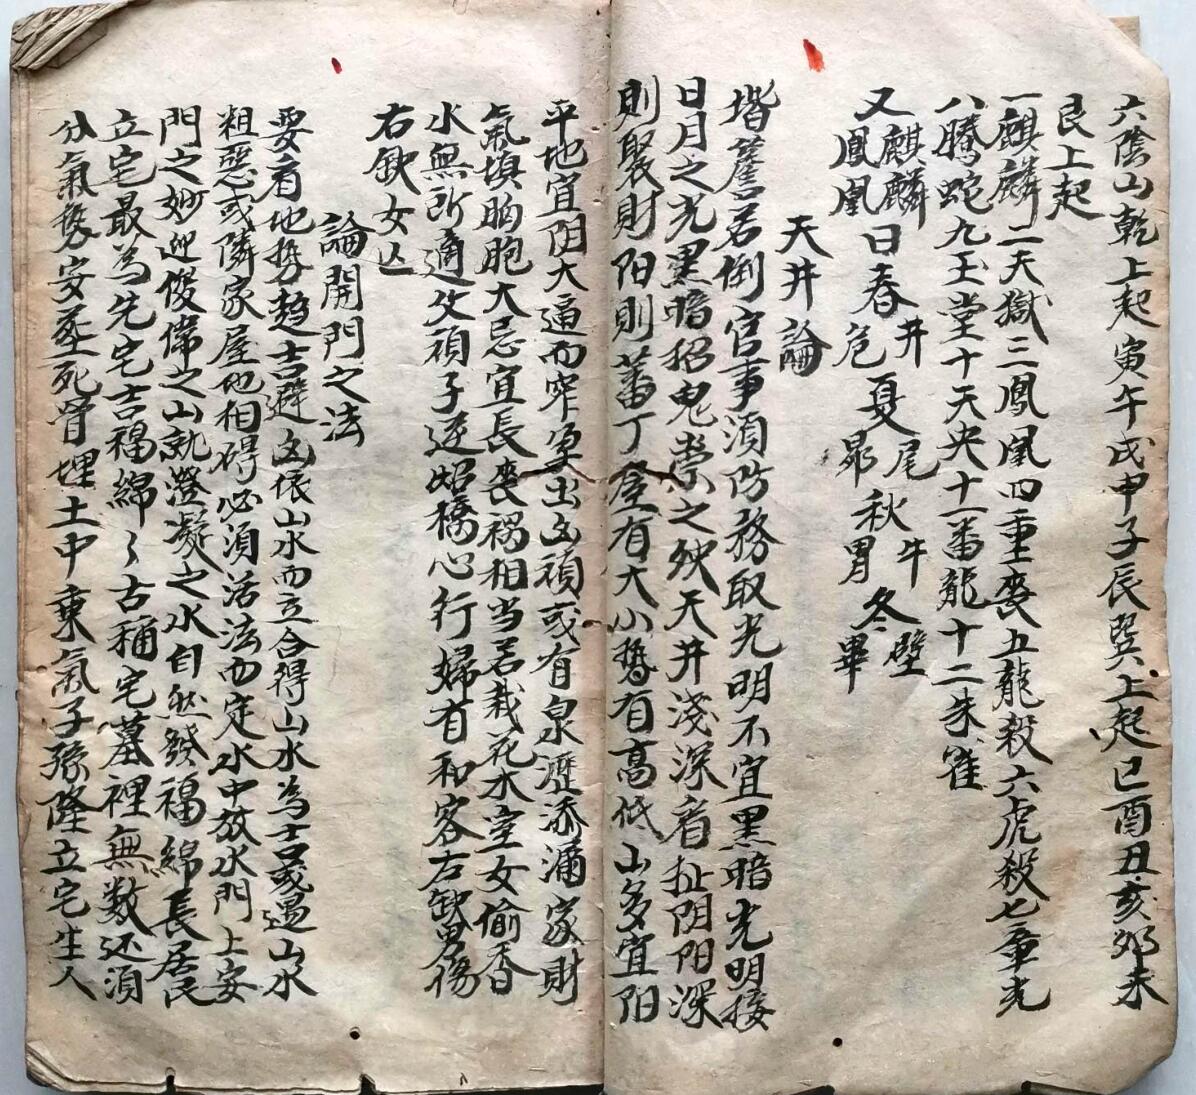 六陰山乾上起寅午戌申子辰巽上起巳酉丑亥卯未
艮上起
一麒麟二天獄三鳳凰四重喪五龍殺六虎殺七章光
八騰蛇九玉堂十天央十一番龍十二朱雀
又麒麟鳳凰日春井危夏尾昴秋牛胃冬壁畢
天井論
堦簷若倒官事須防務取光明不宜黑暗光明接
日月之光黑暗招鬼祟之殃天井淺深看扯阴阳深
則聚財阳則蕃丁屋有大小勢有高低山多宜阳
平地宜阴大逼而窄出凶頑或有泉瀝添涌家財
氣填胸胞大忌宜長喪禍相当若栽花木室女偷香
水無所適父頑子逆招橋心行婦有和客左缺男傷
右缺女亾
論開門之法
要看地势趋吉避凶依山水而立合得山水為吉或遇山水
粗惡或隣家屋地相碍必須活法而定水中放水門上安
門之妙迎俊偉之山就澄凝之水自然發福綿長居民
立宅最為先宅吉福綿々古稱宅墓裡無数还須
分氣势安葬死骨埋土中乘氣子孫隆立宅生人